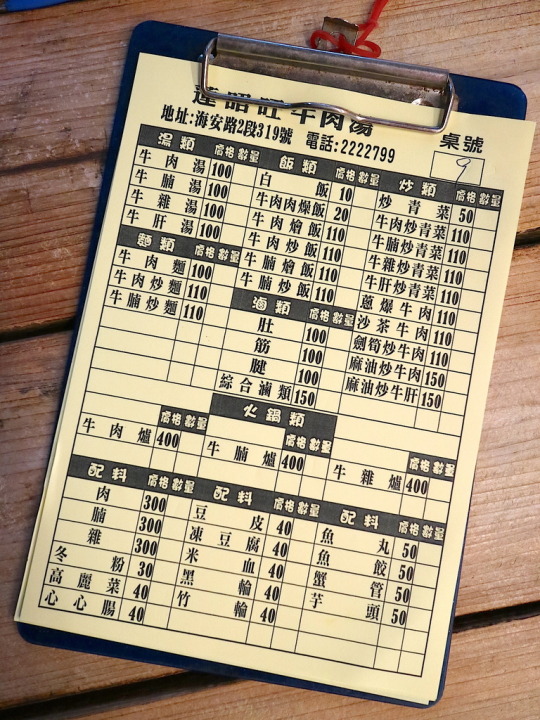 牛肉湯
地址:海安路2段319號 電話:2222799
桌號
9
湯類 價格 數量
牛肉湯 100
牛腩湯 100
牛雜湯 100
牛肝湯 100
麵類 價格 數量
牛肉麵 100
牛肉炒麵 110
牛腩炒麵 110
飯類 價格 數量
白飯 10
牛肉肉燥飯 20
牛肉燴飯 110
牛肉炒飯 110
牛腩燴飯 110
牛腩炒飯 110
滷類 價格 數量
肚 100
筋 100
腱 100
綜合滷類 150
炒類 價格 數量
炒青菜 50
牛肉炒青菜 110
牛腩炒青菜 110
牛雜炒青菜 110
牛肝炒青菜 110
蔥爆牛肉 110
沙茶牛肉 110
劍筍炒牛肉 110
麻油炒牛肉 150
麻油炒牛肝 150
火鍋類
價格 數量
牛肉爐 400
價格 數量
牛腩爐 400
價格 數量
牛雜爐 400
配料 價格 數量
肉 300
腩 300
雜 300
冬粉 30
高麗菜 40
心心腸 40
配料 價格 數量
豆皮 40
凍豆腐 40
米血 40
黑輪 40
竹輪 40
配料 價格 數量
魚丸 50
魚餃 50
蟹管 50
芋頭 50